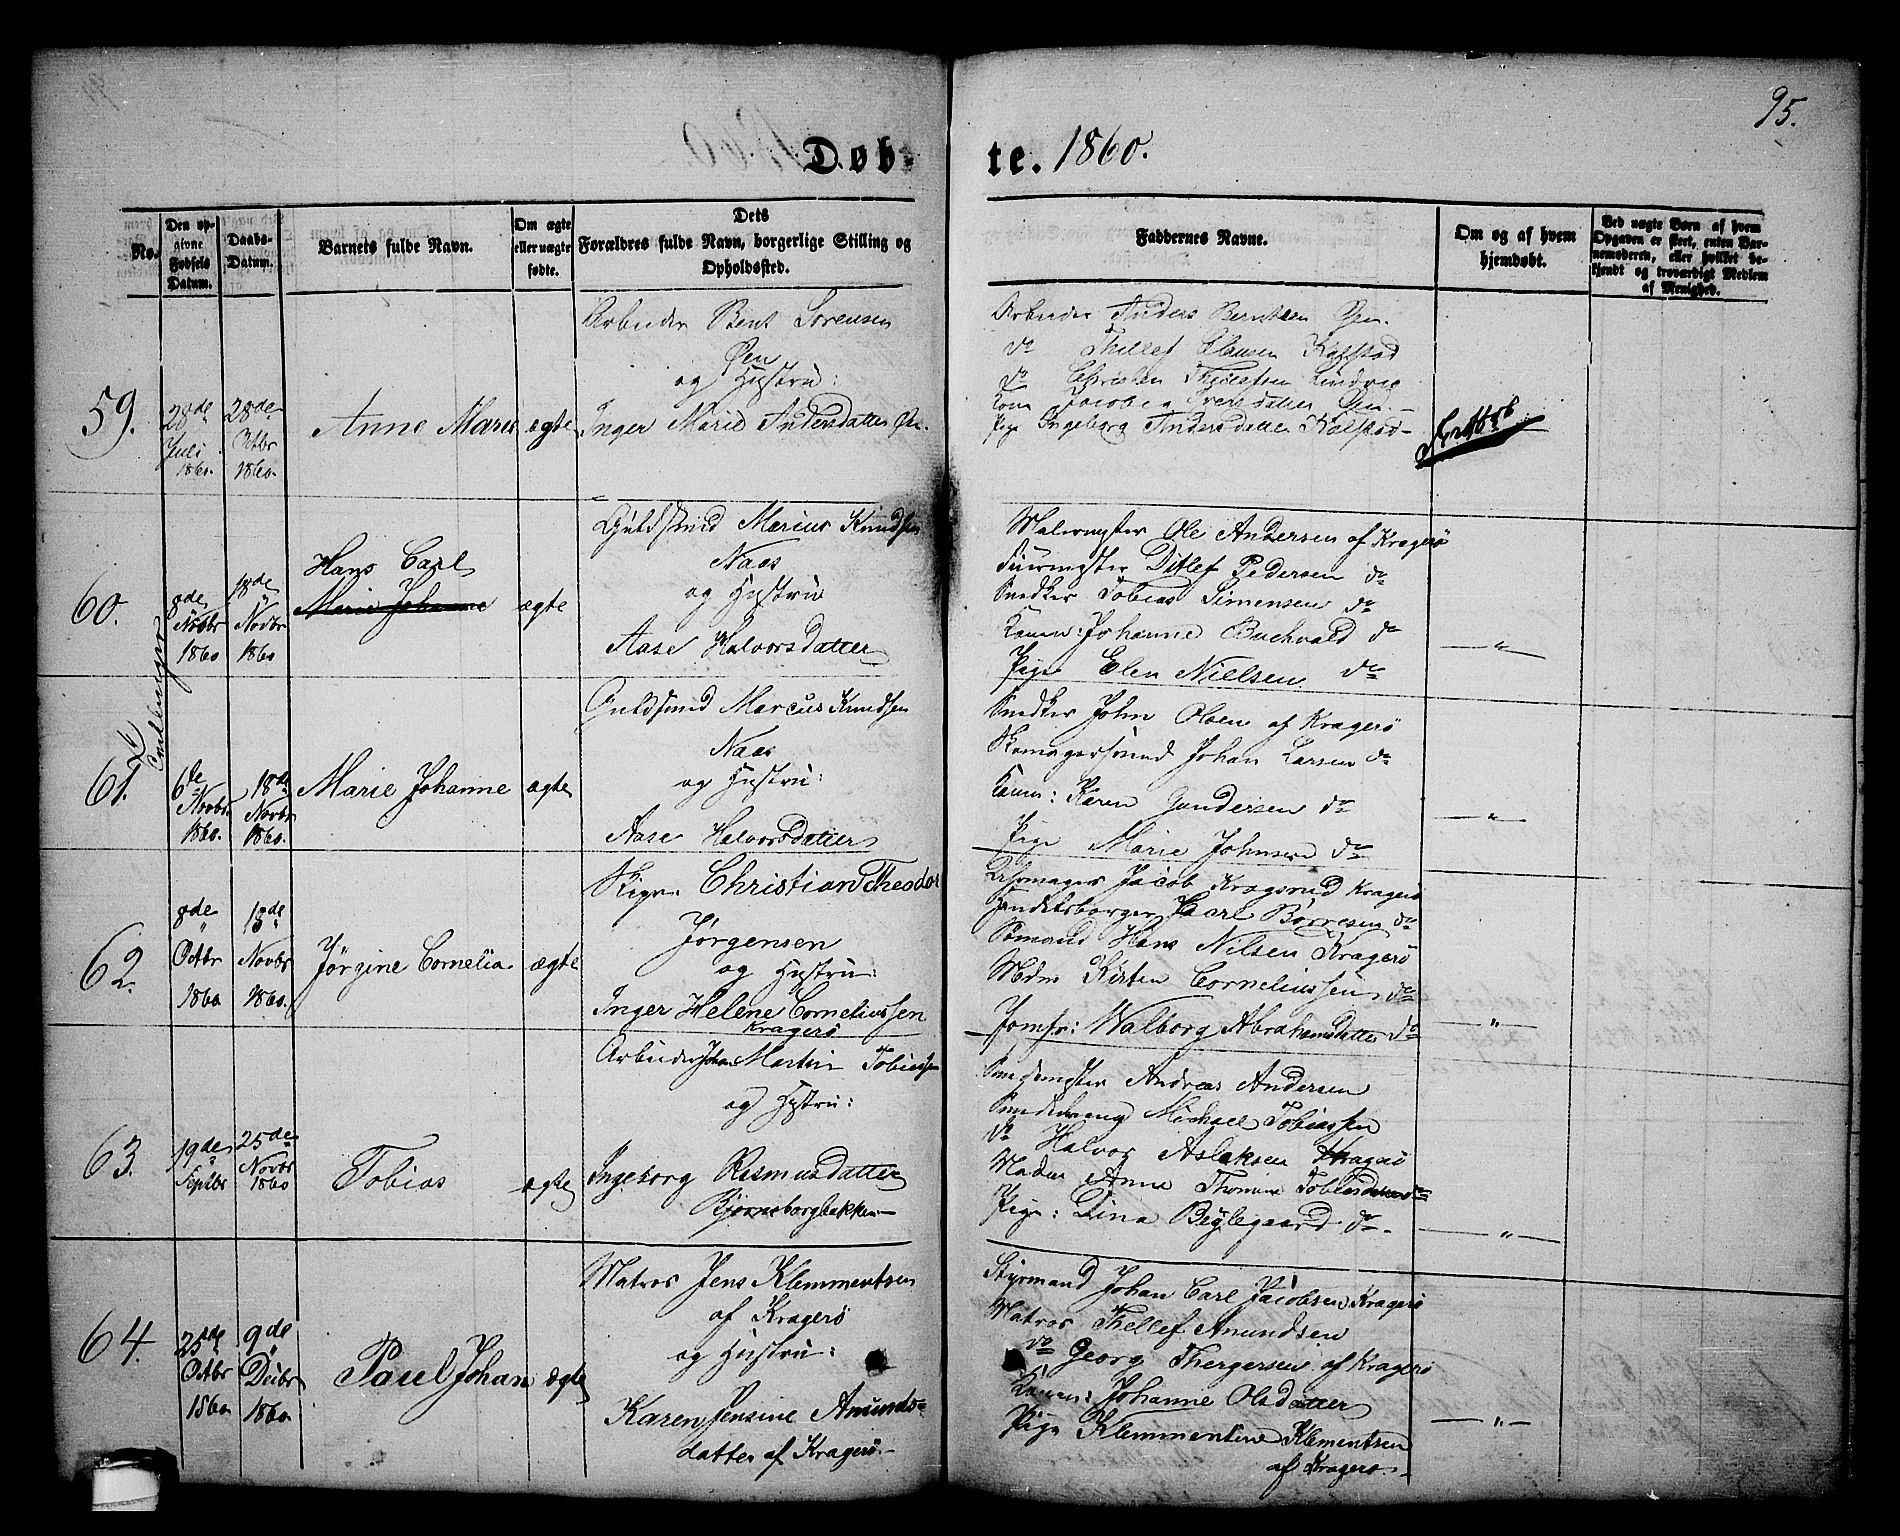 95.
Døb-
te. 1860.
No.
Den op-
givne
Fødsels
Datum.
Daabs-
Datum.
Barnets fulde Navn.
Om ægte
eller uægte
fødte.
Dets
Forældres fulde Navn, borgerlige Stilling og
Opholdssted.
Faddernes Navne.
Om og af hvem
hjemdøbt.
Ved uægte Børn af hvem
Opgaven er skeet, enten Bar-
nemoderen, eller hvilket be-
kjendt og troværdigt Medlem
af Menighed.
59.
28de
Juli
1860.
28de
Octbr
1860.
Anne Marie
ægte
Arbeider Bent Sorensen
Øen
og Hustru:
Inger Marie Andersdatter Øen.
Arbeider Anders Berntsen Øen.
do Thellef Clausen Kalstad
do Christen
Kone Jacobea Iversdatter Øen.
Pige Ingeborg Andersdatter Kalstad
60.
8de
Novbr
1860
18de
Novbr
1860
Hans Carl
Marie Johanne
ægte
Guldsmed Marcus Knudsen
Naas
og Hustru
Aase Halvorsdatter
Malermester Ole Andersen af Kragerö
Ditlef Pedersen do
Snedker Tobias Simensen do
Konen: Johanne Buchvald do
Pige Elen Nielsen do
— " —
Tvillinger
61.
6de
Novbr.
1860.
18de
Novbr
1860.
Marie Johanne
ægte
Guldsmed Marcus Knudsen
Naas
og Hustru:
Aase Halvorsdatter
Snedker John Olsen af Kragerö
Johan Larsen do
Konen: Karen Gundersen do
Pige Marie Johnsen do
— " —
62.
8de
Octbr
1860
18de
Novbr
1860.
Jørgine Cornelia
ægte
Skipr. Christian Theodor
Jørgensen
og Hustru:
Inger Helene Corneliussen
Kragerö
Jacob Kragsrud Kragerö
Handelsborger Carl Börresen do
Sömand Hans Nilsen Kragerö
Mdm Kirsten Corneliussen do
Jomfr: Walborg Abrahamsdatter do
— " —
63.
19de
Septbr
25de
Novbr
1860
Tobias
ægte
Arbeider Johan Martin Tobiassen
og Hustru:
Ingeborg Rasmusdatter
Bjørnsborgbakken
Smedmester Andreas Andersen
Smededreng Michael Tobiassen
do Halvor Aslaksen Kragerö
Madm Anne Thomine Tobiasdatter do
Pige: Lina Beylegaard do
— " —
64.
25de
Octbr
1860
9de
Decbr
1860
Paul Johan
ægte
Matros Jens Klemmentsen
af Kragerö
og Hustru:
Karen Jensine Amunds-
datter af Kragerö.
Styrmand Johan Carl Jacobsen Kragerö
Matros Thellef Amundsen
do Georg Thergersen af Kragerö
Konen: Johanne Olsdatter
Pige Klemmentine Klementsen
af Kragerö.
— " —